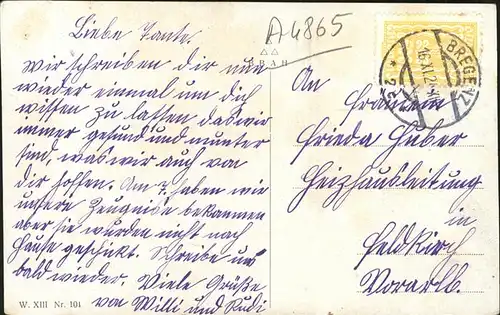 Liebe Tante.
Wir schreiben dir nun
wieder einmal um dich
wissen zu lassen das wir
immer gesund und munter
sind, was wir auch von
dir hoffen. Am 7. haben wir
unsere Zeugnise bekommen
aber sie wurden nicht nach
Hause geschikt. Schreibe uns
bald wieder. Viele Grüße
von Willi und Rudi
W. XIII Nr. 104
A4865
BRAH
BREGENZ
An
Fräulein
Frieda Huber
Heizhausleitung
in
Feldkirch
Vorarlb.